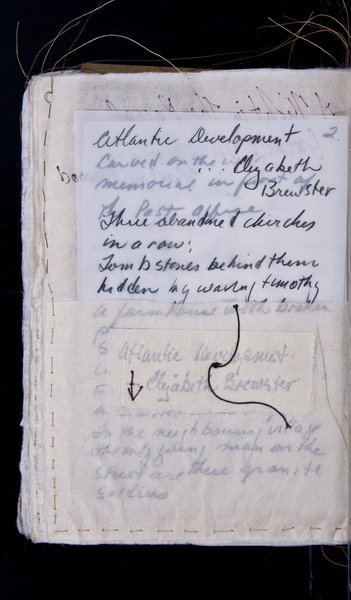 Atlantic Development 2.
Carved on the war
... Elizabeth
memorial in front of
Brewster
the Post Office
Three abandoned churches
in a row;
Tombstones behind them
hidden by waving timothy
a farmhouse with broken
Atlantic Development
Elizabeth Brewster
In the neighbouring village
the only young men on the
street are these granite
soldiers